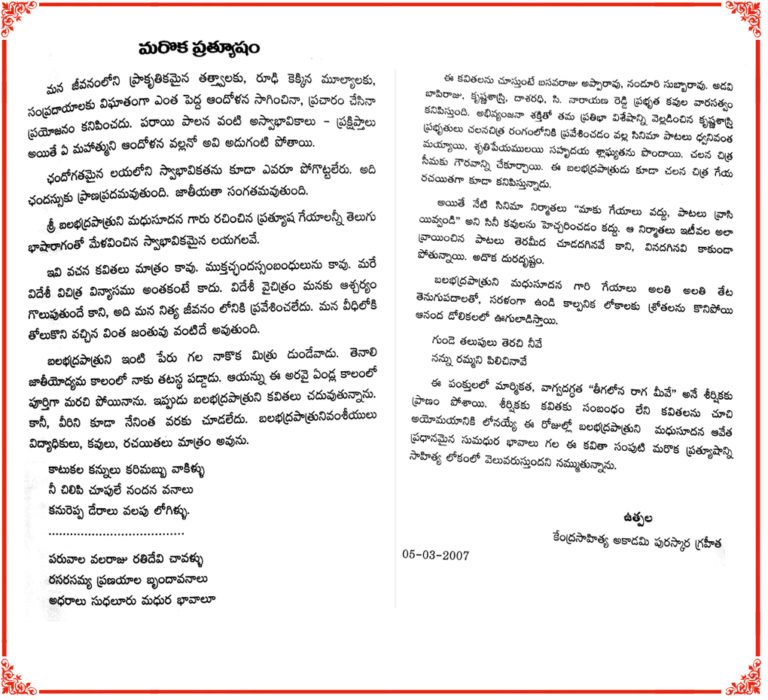 మరొక ప్రత్యూషం
మన జీవనంలోని ప్రాకృతికమైన తత్త్వాలకు, రూఢి కెక్కిన మూల్యాలకు,
సంప్రదాయాలకు విఘాతంగా ఎంత పెద్ద ఆందోళన సాగించినా, ప్రచారం చేసినా
ప్రయోజనం కనిపించదు. పరాయి పాలన వంటి అస్వాభావికాలు – ప్రక్షిప్తాలు
అయితే ఏ మహాత్ముని ఆందోళన వల్లనో అవి అడుగంటి పోతాయి.
ఛందోగతమైన లయలోని స్వాభావికతను కూడా ఎవరూ పోగొట్టలేరు. అది
ఛందస్సుకు ప్రాణప్రదమవుతుంది. జాతీయతా సంగతమవుతుంది.
శ్రీ బలభద్రపాత్రుని మధుసూదన గారు రచించిన ప్రత్యూష గేయాలన్నీ తెలుగు
భాషారాగంతో మేళవించిన స్వాభావికమైన లయగలవే.
ఇవి వచన కవితలు మాత్రం కావు. ముక్తచ్ఛందస్సంబంధులును కావు. మరే
విదేశీ విచిత్ర విన్యాసము అంతకంటే కాదు. విదేశీ వైచిత్రం మనకు ఆశ్చర్యం
గొలుపుతుందే కాని, అది మన నిత్య జీవనం లోనికి ప్రవేశించలేదు. మన వీధిలోకి
తోలుకొని వచ్చిన వింత జంతువు వంటిదే అవుతుంది.
బలభద్రపాత్రుని ఇంటి పేరు గల నాకొక మిత్రు డుండేవాడు. తెనాలి
జాతీయోద్యమ కాలంలో నాకు తటస్థ పడ్డాడు. ఆయన్ను ఈ అరవై ఏండ్ల కాలంలో
పూర్తిగా మరచి పోయినాను. ఇప్పుడు బలభద్రపాత్రుని కవితలు చదువుతున్నాను.
కానీ, వీరిని కూడా నేనింత వరకు చూడలేదు. బలభద్రపాత్రునివంశీయులు
విద్యాధికులు, కవులు, రచయితలు మాత్రం అవును.
కాటుకల కన్నులు కరిమబ్బు వాకిళ్ళు
నీ చిలిపి చూపులే నందన వనాలు
కనురెప్ప డేరాలు వలపు లోగిళ్ళు.
....................................
పరువాల వలరాజు రతిదేవి చావళ్ళు
రసరసమ్య ప్రణయాల బృందావనాలు
అధరాలు సుధలూరు మధుర భావాలూ
ఈ కవితలను చూస్తుంటే బసవరాజు అప్పారావు, నండూరి సుబ్బారావు. అడవి
బాపిరాజు, కృష్ణశాస్త్రి, దాశరధి, సి. నారాయణ రెడ్డి ప్రభృత కవుల వారసత్వం
కనిపిస్తుంది. అభివ్యంజనా శక్తితో తమ ప్రతిభా విశేషాన్ని వెల్లడించిన కృష్ణశాస్త్రి
ప్రభృతులు చలనచిత్ర రంగంలోనికి ప్రవేశించడం వల్ల సినిమా పాటలు ధ్వనివంత
మయ్యాయి, శృతిపేయములయి సహృదయ శ్లాఘ్యతను పొందాయి. చలన చిత్ర
సీమకు గౌరవాన్ని చేకూర్చాయి. ఈ బలభద్రపాత్రుడు కూడా చలన చిత్ర గేయ
రచయితగా కూడా కనిపిస్తున్నాడు.
అయితే నేటి సినిమా నిర్మాతలు "మాకు గేయాలు వద్దు, పాటలు వ్రాసి
యివ్వండి" అని సినీ కవులను హెచ్చరించడం కద్దు. ఆ నిర్మాతలు ఇటీవల అలా
వ్రాయించిన పాటలు తెరమీద చూడదగినవే కాని, వినదగినవి కాకుండా
పోతున్నాయి. అదొక దురదృష్టం.
బలభద్రపాత్రుని మధుసూదన గారి గేయాలు అలతి అలతి తేట
తెనుగుపదాలతో, సరళంగా ఉండి కాల్పనిక లోకాలకు శ్రోతలను కొనిపోయి
ఆనంద డోలికలలో ఊగులాడిస్తాయి.
గుండె తలుపులు తెరచి నీవే
నన్ను రమ్మని పిలిచినావే
ఈ పంక్తులలో మార్మికత, వాగ్విదగ్ధత "తీగలోన రాగ మీవే" అనే శీర్షికకు
ప్రాణం పోశాయి. శీర్షికకు కవితకు సంబంధం లేని కవితలను చూచి
అయోమయానికి లోనయ్యే ఈ రోజుల్లో బలభద్రపాత్రుని మధుసూదన ఆవేత
ప్రధానమైన సుమధుర భావాలు గల ఈ కవితా సంపుటి మరొక ప్రత్యూషాన్ని
సాహిత్య లోకంలో వెలువరుస్తుందని నమ్ముతున్నాను.
ఉత్పల
కేంద్రసాహిత్య అకాడమి పురస్కార గ్రహీత
05-03-2007